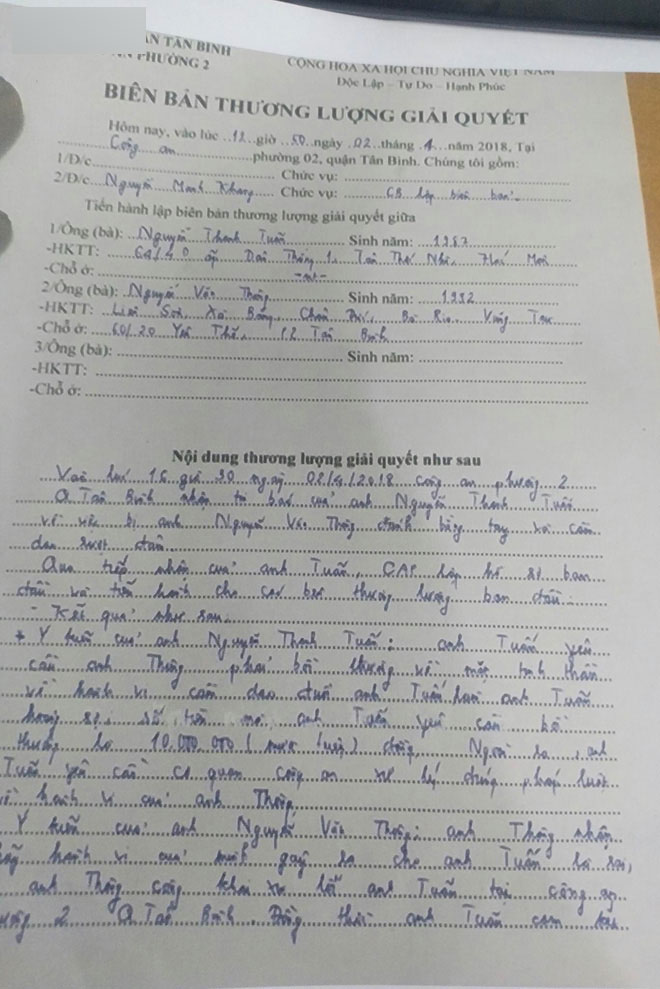 ẬN TÂN BÌNH
PHƯỜNG 2
CỘNG HÒA XÃ HỘI CHỦ NGHĨA VIỆT NAM
Độc Lập – Tự Do – Hạnh Phúc
BIÊN BẢN THƯƠNG LƯỢNG GIẢI QUYẾT
Hôm nay, vào lúc 12 giờ 50 ngày 02 tháng 4 năm 2018, Tại
Công an phường 02, quận Tân Bình. Chúng tôi gồm:
1/Đ/c Chức vụ:
2/Đ/c Nguyễn Minh Khang Chức vụ: CB lập biên bản.
Tiến hành lập biên bản thương lượng giải quyết giữa
1/Ông (bà): Nguyễn Thanh Tuấn Sinh năm: 1987
-HKTT: 64/4D ấp Tân Thới Nhì, Hoóc Môn
-Chỗ ở:
2/Ông (bà): Nguyễn Văn Thông Sinh năm: 1992
-HKTT: Xà Bang, Châu Đức, Bà Rịa Vũng Tàu
-Chỗ ở: 60/20 Yên Thế, P2 Tân Bình
3/Ông (bà): Sinh năm:
-HKTT:
-Chỗ ở:
Nội dung thương lượng giải quyết như sau
Vào lúc 16 giờ 30 ngày 02/4/2018 công an phường 2
Q Tân Bình nhận tin báo của anh Nguyễn Thanh Tuấn
về việc bị anh Nguyễn Văn Thông đánh bằng tay và cầm
dao rượt đuổi.
Qua tiếp nhận của anh Tuấn, CAP lập hồ sơ ban
đầu và tiến hành cho các bên thương lượng ban đầu.
- Kết quả như sau.
* Ý kiến của anh Nguyễn Thanh Tuấn: anh Tuấn yêu
cầu anh Thông phải bồi thường về mặt tinh thần
về hành vi cầm dao đuổi anh Tuấn làm anh Tuấn
hoảng sợ, số tiền mà anh Tuấn yêu cầu bồi
thường là 10.000.000 (mười triệu) đồng, Ngoài ra, anh
Tuấn yêu cầu cơ quan công an xử lý đúng pháp luật
về hành vi của anh Thông.
Ý kiến của anh Nguyễn Văn Thông: anh Thông nhận
thấy hành vi của mình gây ra cho anh Tuấn là sai,
anh Thông công khai xin lỗi anh Tuấn tại công an
phường 2 Q Tân Bình. Đồng thời anh Tuấn cam kết